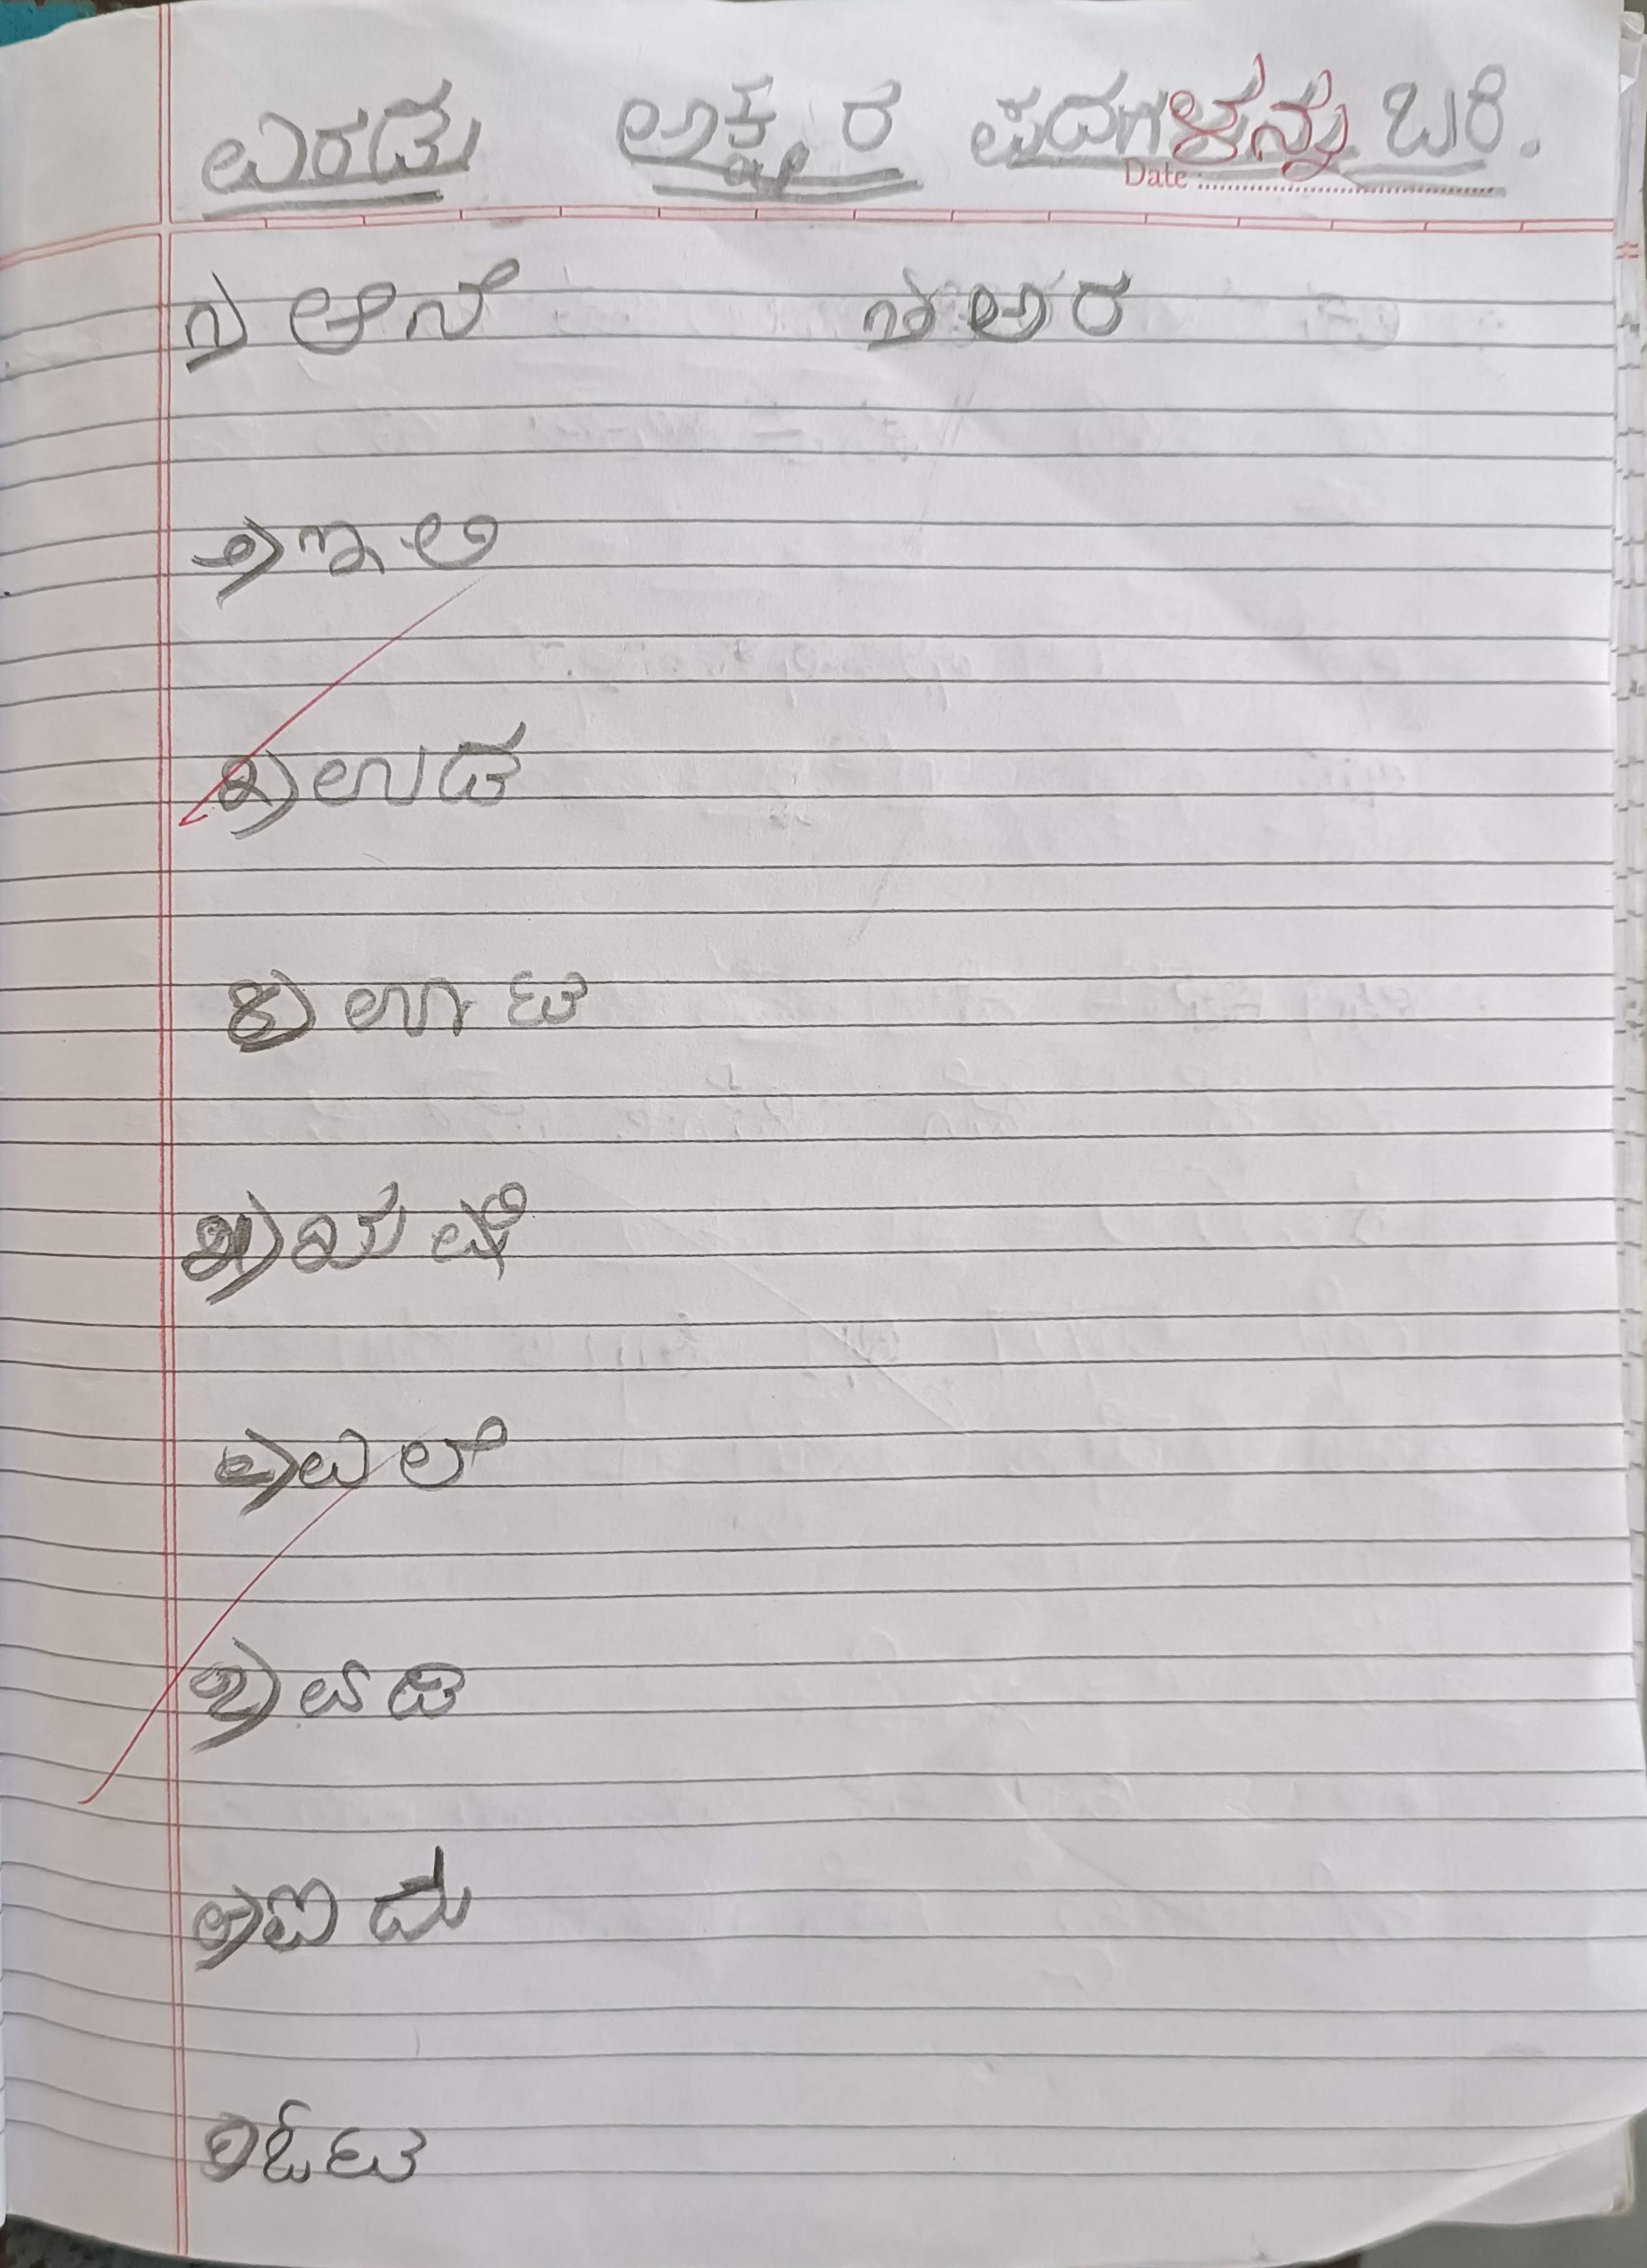 ಎರಡು ಅಕ್ಷರ ಪದಗಳನ್ನು ಬರಿ.
Date
೧) ಆನೆ ೧) ಅರ
೨) ಇಲಿ
೩) ಉಡ
೪) ಊಟ
೫) ಋಷಿ
೬) ಎಲೆ
೭) ಏಡಿ
೮) ಐದು
೯) ಓಟ